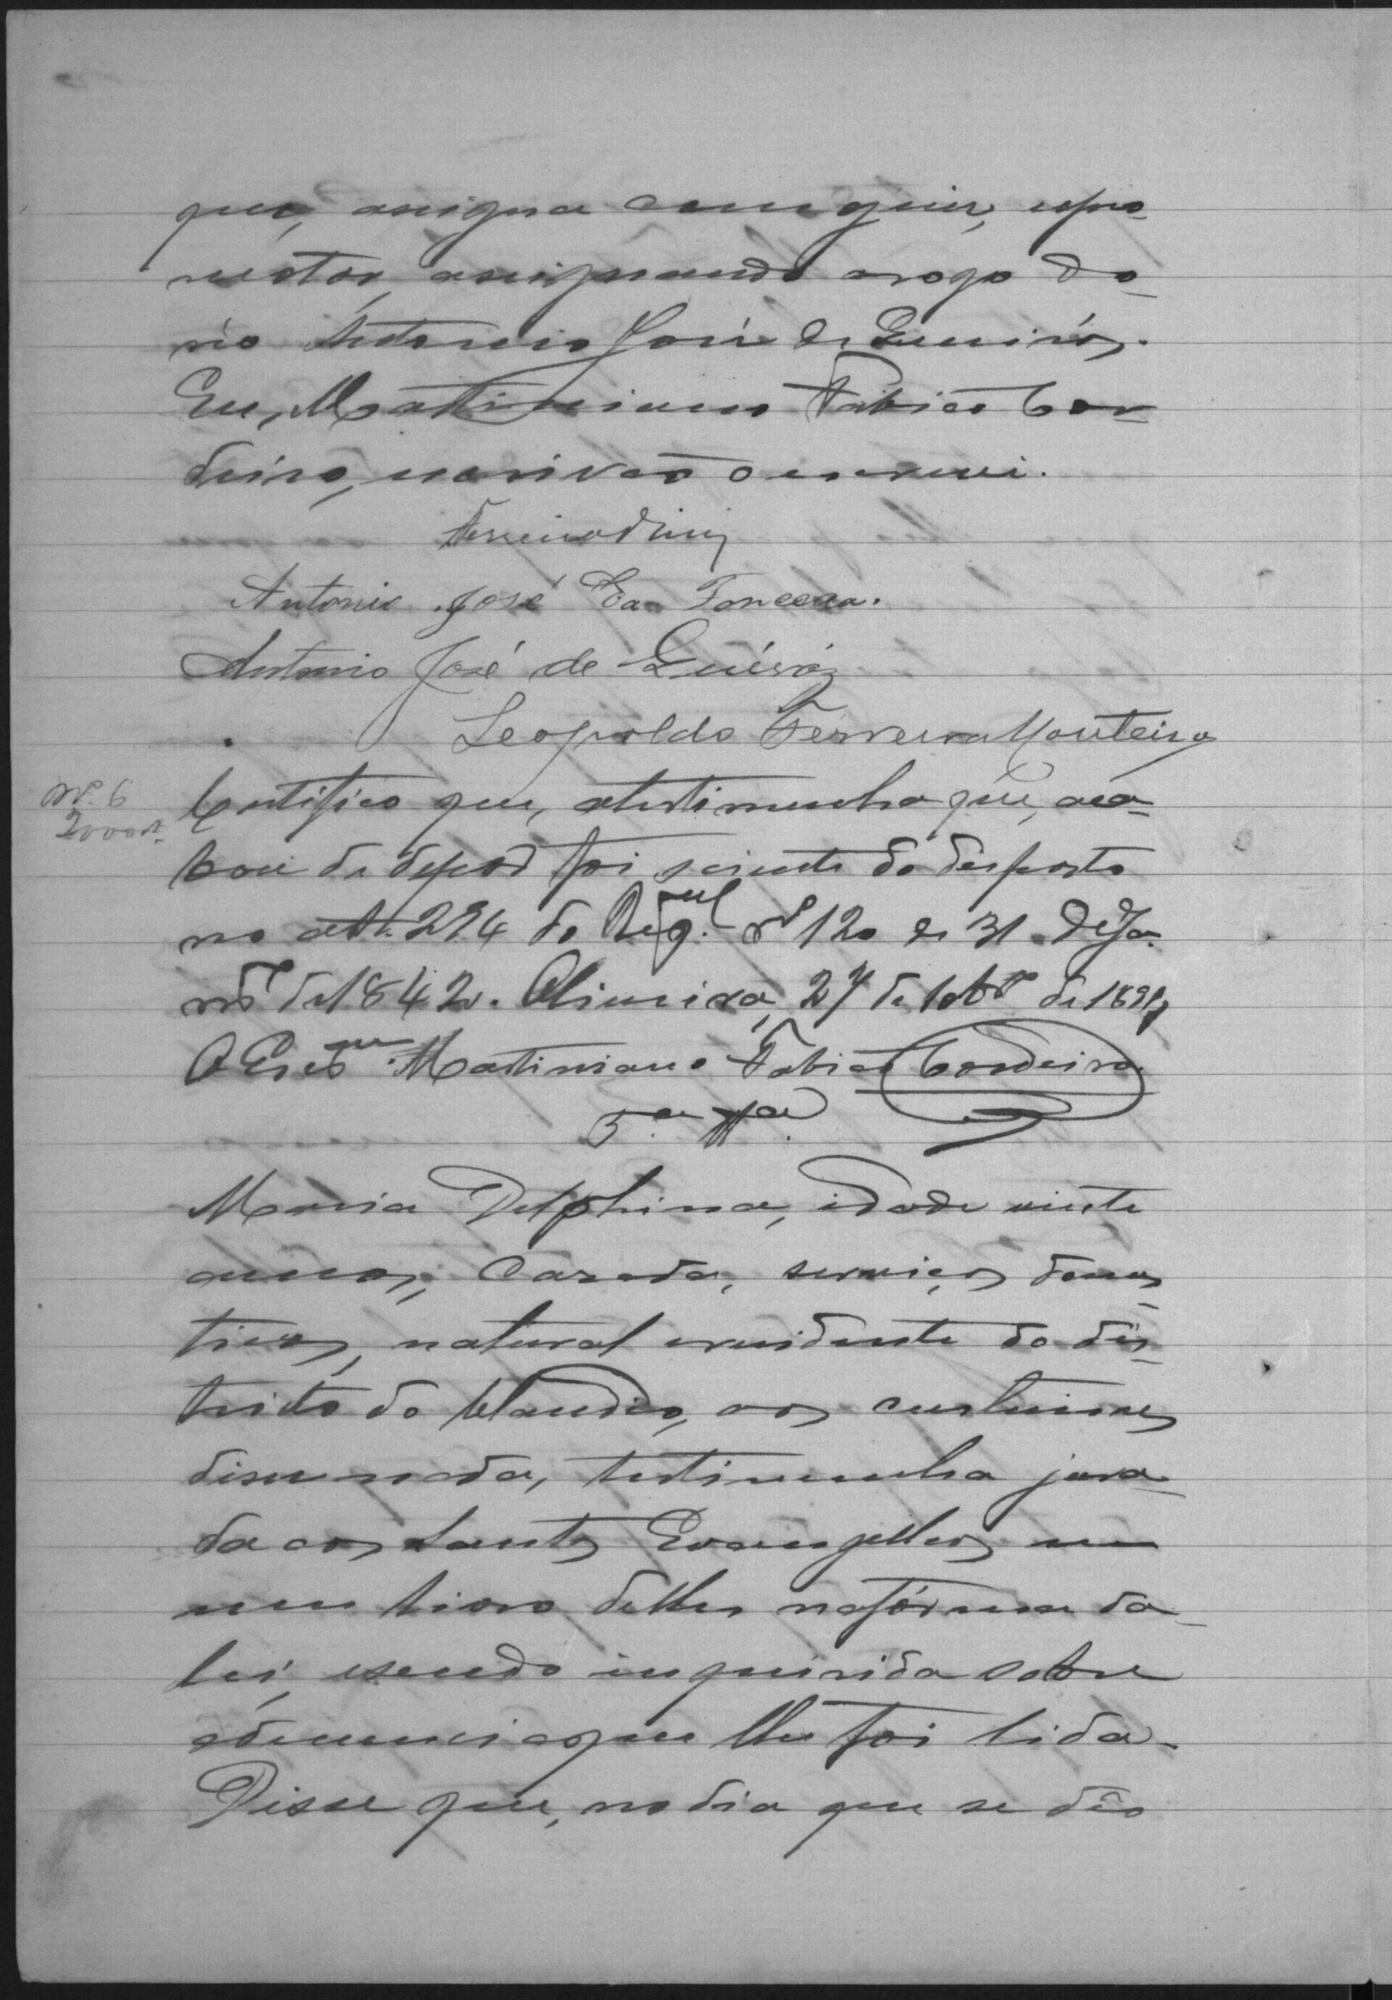 que, assigna com o juiz, e pro-
motor, assignando a rogo do
réo Antonio José de Queiróz.
Eu, Martiniano Fabião Cor-
deiro, escrivão o escrevi.
Antonio José da Fonceca.
Antonio José de Queiróz
Leopoldo Ferreira Monteiro
Nº. 6
2000 rs.
Certifico que, a testimunha que, aca-
bou de depôr foi sciente do disposto
no art. 294 do Regul. nº 120 de 31 de Ja-
nrº de 1842. Oliveira, 27 de 10brº de 1897
O Escram. Martiniano Fabião Cordeiro.
5.ª Tta.
Maria Delphina, idade vinte
annos, casada, serviços domes
ticos, natural e residente do dis-
tricto do Claudio, aos custumes
disse nada, testimunha jura-
da aos Santos Evangelhos em
um livro delles na fórma da
lei, e sendo inquirida sobre
a denuncia que lhe foi lida.
Disse que, no dia que se déo